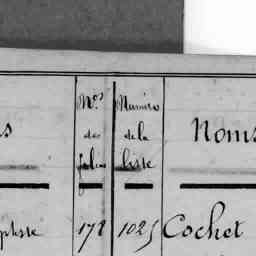 Nos des folios
Numéro de la liste
Noms
178 1025 Cochet